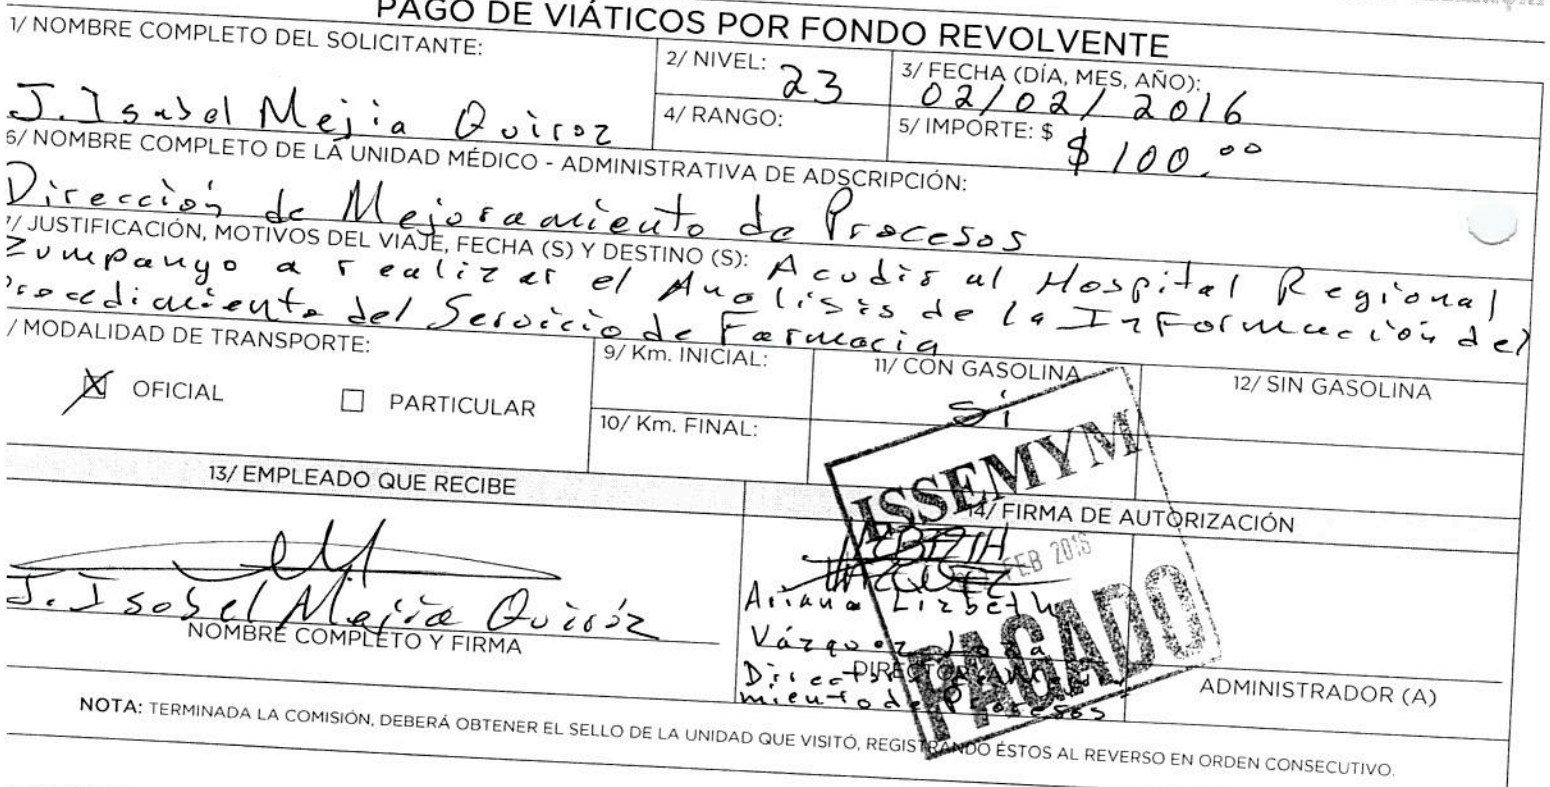 PAGO DE VIÁTICOS POR FONDO REVOLVENTE
1/ NOMBRE COMPLETO DEL SOLICITANTE:
J. Isabel Mejia Quiroz
2/ NIVEL: 23
3/ FECHA (DÍA, MES, AÑO):
02/02/2016
4/ RANGO:
5/ IMPORTE: $
$ 100.00
6/ NOMBRE COMPLETO DE LA UNIDAD MÉDICO - ADMINISTRATIVA DE ADSCRIPCIÓN:
Dirección de Mejoramiento de Procesos
7/ JUSTIFICACIÓN, MOTIVOS DEL VIAJE, FECHA (S) Y DESTINO (S): Acudir al Hospital Regional
Zumpango a realizar el Analisis de la Información del
Procedimiento del Servicio de Farmacia
/ MODALIDAD DE TRANSPORTE:
OFICIAL
PARTICULAR
9/ Km. INICIAL:
10/ Km. FINAL:
11/ CON GASOLINA
Si
12/ SIN GASOLINA
13/ EMPLEADO QUE RECIBE
14/ FIRMA DE AUTORIZACIÓN
J. Isabel Mejía Quiróz
NOMBRE COMPLETO Y FIRMA
ISSEMYM
FEB 2016
PAGADO
Ariana Lizbeth
Vázquez
DIRECTOR
miento de Procesos
ADMINISTRADOR (A)
NOTA: TERMINADA LA COMISIÓN, DEBERÁ OBTENER EL SELLO DE LA UNIDAD QUE VISITÓ, REGISTRANDO ÉSTOS AL REVERSO EN ORDEN CONSECUTIVO.